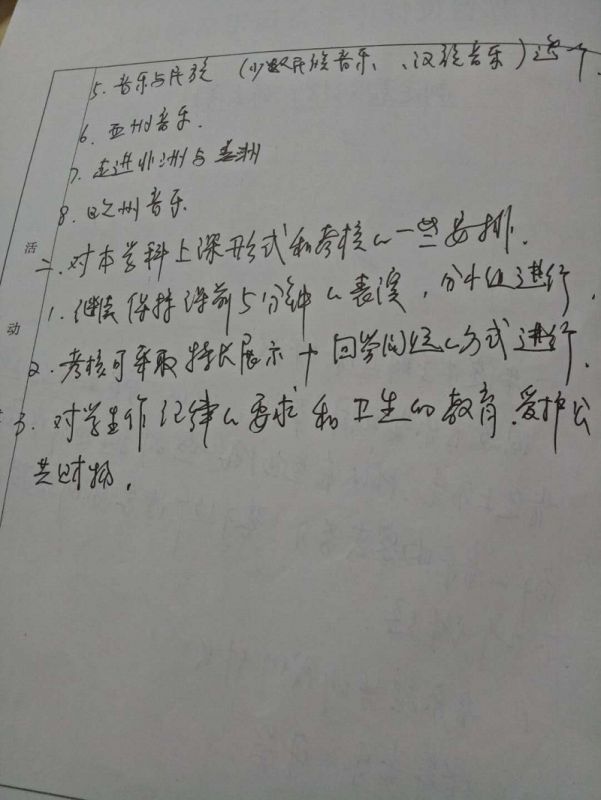 5. 音乐与民族 (少数民族音乐、汉族音乐)
6. 亚洲音乐.
7. 走进非洲与美洲
8. 欧洲音乐.
活
二. 对本学科上课形式和考核的一些安排.
1. 继续保持课前5分钟的表演, 分小组进行,
动
2. 考核可采取特长展示+回答问题的方式进行.
3. 对学生作纪律的要求和卫生的教育.爱护公
共财物.